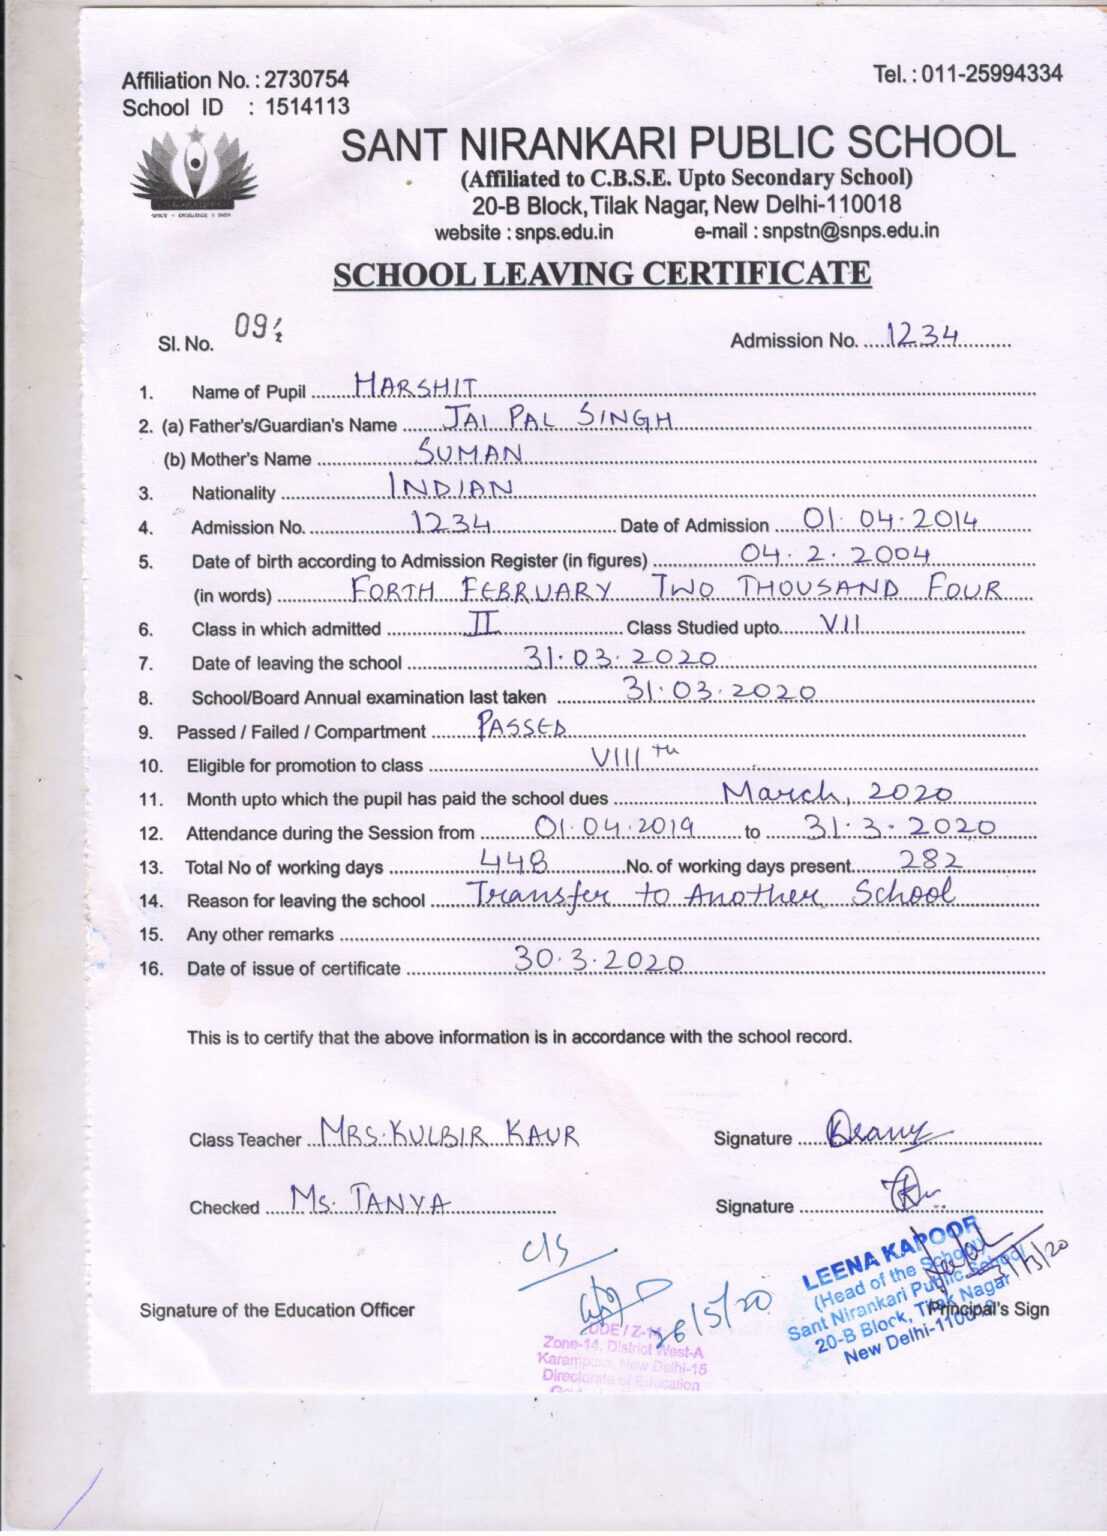 Affiliation No. : 2730754
Tel. : 011-25994334
School ID : 1514113
SANT NIRANKARI PUBLIC SCHOOL
(Affiliated to C.B.S.E. Upto Secondary School)
20-B Block, Tilak Nagar, New Delhi-110018
website : snps.edu.in e-mail : snpstn@snps.edu.in
SCHOOL LEAVING CERTIFICATE
Sl. No. Admission No. 1234
1. Name of Pupil HARSHIT
2. (a) Father's/Guardian's Name JAI PAL SINGH
(b) Mother's Name SUMAN
3. Nationality INDIAN
4. Admission No. 1234 Date of Admission 01.04.2014
5. Date of birth according to Admission Register (in figures) 04.2.2004
(in words) FORTH FEBRUARY TWO THOUSAND FOUR
6. Class in which admitted II Class Studied upto VII
7. Date of leaving the school 31.03.2020
8. School/Board Annual examination last taken 31.03.2020
9. Passed / Failed / Compartment PASSED
10. Eligible for promotion to class VIII th
11. Month upto which the pupil has paid the school dues March, 2020
12. Attendance during the Session from 01.04.2019 to 31.3.2020
13. Total No of working days 448 No. of working days present 282
14. Reason for leaving the school Transfer to Another School
15. Any other remarks
16. Date of issue of certificate 30.3.2020
This is to certify that the above information is in accordance with the school record.
Class Teacher MRS. KULBIR KAUR Signature
Checked Ms. TANYA Signature
C/S
LEENA KAPOOR
(Head of the School)
Sant Nirankari Public School
20-B Block, Tilak Nagar
New Delhi-110018
Signature of the Education Officer Principal's Sign
26/5/20
DDE / Z-14
Zone-14, District West-A
Karampura, New Delhi-15
Directorate of Education